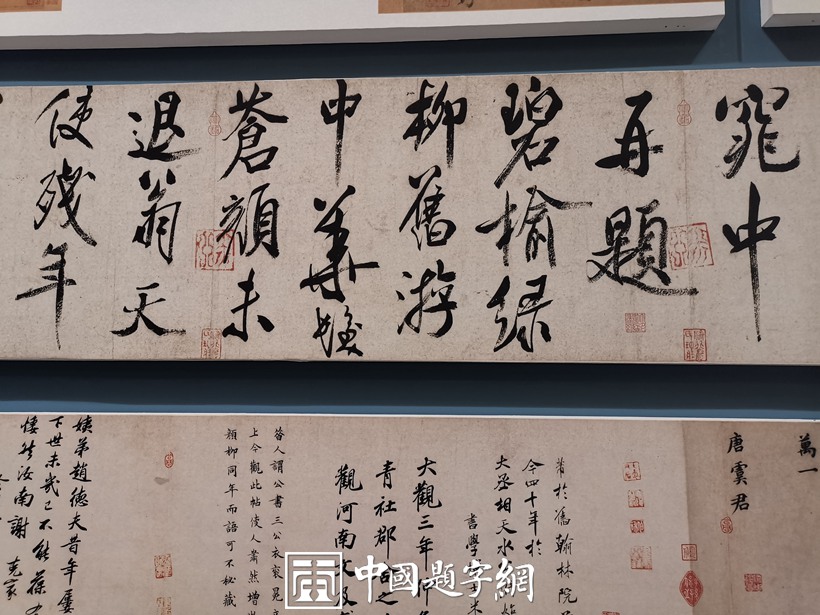 窕中
再題
碧榆綠
柳舊游
中華髮
蒼顏未
退翁天
使殘年
萬一
唐君
昔於馮翰林院
今四十年於
大丞相天水
書學
大觀三年仲
青社郡舍之
觀河南文及
昔人謂公書三公衣衮冕
上今觀此帖使人肅然增
顏柳同年而語可不秘藏
姨弟趙德夫昔年屢
下世未幾已不能葆
悽然汝南謝克家
中國題字網